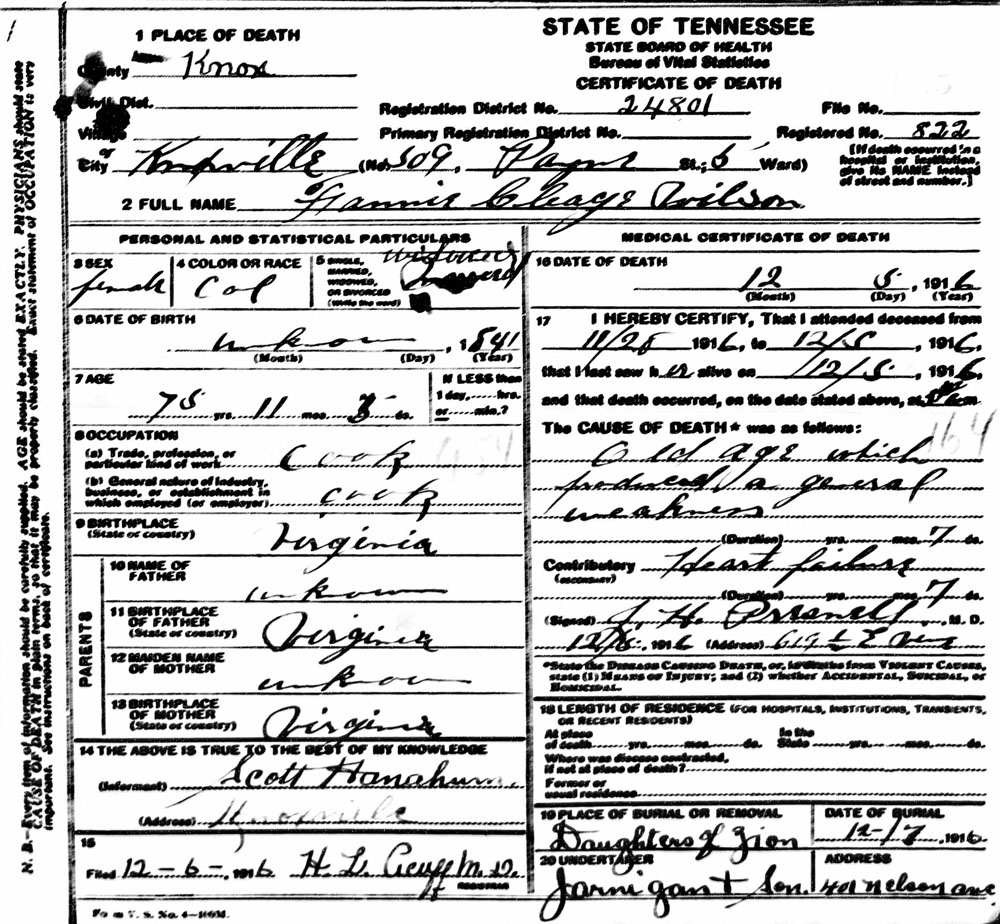 STATE OF TENNESSEE
STATE BOARD OF HEALTH
Bureau of Vital Statistics
CERTIFICATE OF DEATH
1 PLACE OF DEATH
County Knox
Civil Dist.
Registration District No. 24801 File No.
Village Primary Registration District No. Registered No. 822
or
City Knoxville (No. 309, Payne St.; 5 Ward)
[If death occurred in a hospital or institution, give its NAME instead of street and number.]
2 FULL NAME Fannie Cleage Wilson
PERSONAL AND STATISTICAL PARTICULARS
3 SEX female
4 COLOR OR RACE Col
5 SINGLE, MARRIED, WIDOWED, OR DIVORCED (Write the word) widowed
6 DATE OF BIRTH
unknown, 1841
(Month) (Day) (Year)
7 AGE
75 yrs. 11 mos. ds.
If LESS than 1 day, hrs. or min.?
8 OCCUPATION
(a) Trade, profession, or particular kind of work cook
(b) General nature of industry, business, or establishment in which employed (or employer) cook
9 BIRTHPLACE
(State or country) Virginia
PARENTS
10 NAME OF FATHER unknown
11 BIRTHPLACE OF FATHER
(State or country) Virginia
12 MAIDEN NAME OF MOTHER unknown
13 BIRTHPLACE OF MOTHER
(State or country) Virginia
14 THE ABOVE IS TRUE TO THE BEST OF MY KNOWLEDGE
(Informant) Scott
(Address) Knoxville
15
Filed 12-6-, 1916 H. L. M.D.
REGISTRAR
Form V. S. No. 4
MEDICAL CERTIFICATE OF DEATH
16 DATE OF DEATH
12 5, 1916
(Month) (Day) (Year)
17 I HEREBY CERTIFY, That I attended deceased from
11/25 1916, to 12/5, 1916,
that I last saw her alive on 12/5, 1916,
and that death occurred, on the date stated above, at
The CAUSE OF DEATH* was as follows: 164
Old age which
produced a general
weakness
(Duration) yrs. mos. 7 ds.
Contributory Heart failure
(SECONDARY)
(Duration) yrs. mos. 7 ds.
(Signed) J. H. Presnell, M. D.
1916 (Address) 619½ E
*State the DISEASE CAUSING DEATH, or, in deaths from VIOLENT CAUSES, state (1) MEANS OF INJURY; and (2) whether ACCIDENTAL, SUICIDAL, or HOMICIDAL.
18 LENGTH OF RESIDENCE (FOR HOSPITALS, INSTITUTIONS, TRANSIENTS, OR RECENT RESIDENTS)
At place of death yrs. mos. ds. In the State yrs. mos. ds.
Where was disease contracted, if not at place of death?
Former or usual residence
19 PLACE OF BURIAL OR REMOVAL
Daughters of Zion
DATE OF BURIAL
12-7, 1916
20 UNDERTAKER
Jarnigan + Son.
ADDRESS
401 Nelson ave
N. B.—Every item of information should be carefully supplied. AGE should be stated EXACTLY. PHYSICIANS should state
CAUSE OF DEATH in plain terms, so that it may be properly classified. Exact statement of OCCUPATION is very
important. See instructions on back of certificate.